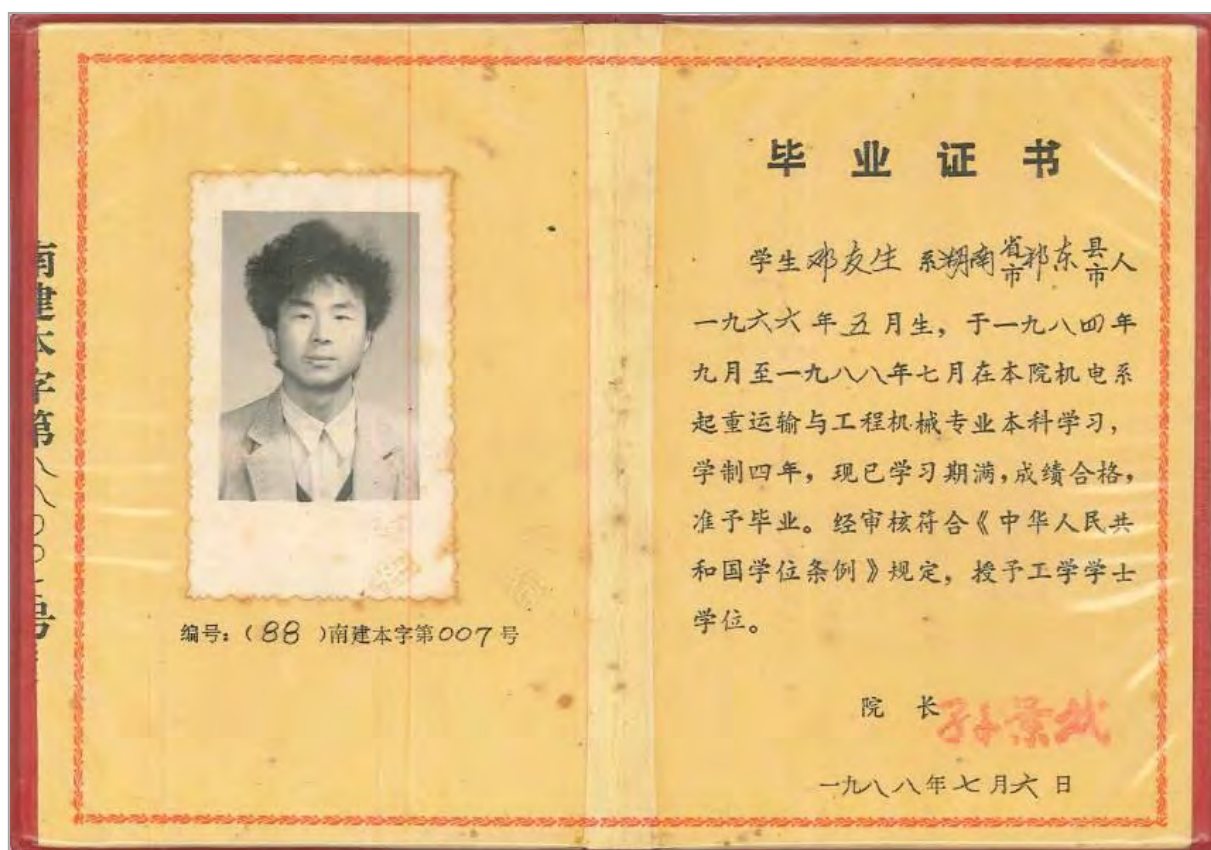 南建本字第八八〇〇七号
编号：（88）南建本字第007号
毕业证书
学生邓友生 系湖南省市祁东县市人
一九六六年五月生，于一九八四年
九月至一九八八年七月在本院机电系
起重运输与工程机械专业本科学习，
学制四年，现已学习期满，成绩合格，
准予毕业。经审核符合《中华人民共
和国学位条例》规定，授予工学学士
学位。
院 长
一九八八年七月六日